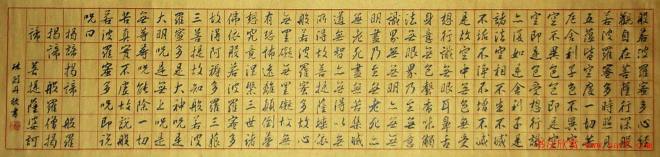 般若波羅蜜多心經
觀自在菩薩行深般
若波羅蜜多時照見
五蘊皆空度一切苦
厄舍利子色不異空
空不異色色即是空
空即是色受想行識
亦復如是舍利子是
諸法空相不生不滅
不垢不淨不增不減
是故空中無色無受
想行識無眼耳鼻舌
身意無色聲香味觸
法無眼界乃至無意
識界無無明亦無無
明盡乃至無老死亦
無老死盡無苦集滅
道無智亦無得以無
所得故菩提薩埵依
般若波羅蜜多故心
無罣礙無罣礙故無
有恐怖遠離顛倒夢
想究竟涅槃三世諸
佛依般若波羅蜜多
故得阿耨多羅三藐
三菩提故知般若波
羅蜜多是大神咒是
大明咒是無上咒是
無等等咒能除一切
苦真實不虛故說般
若波羅蜜多咒即說
咒曰
揭諦揭諦 般羅
揭諦 般羅僧揭
諦 菩提薩婆訶